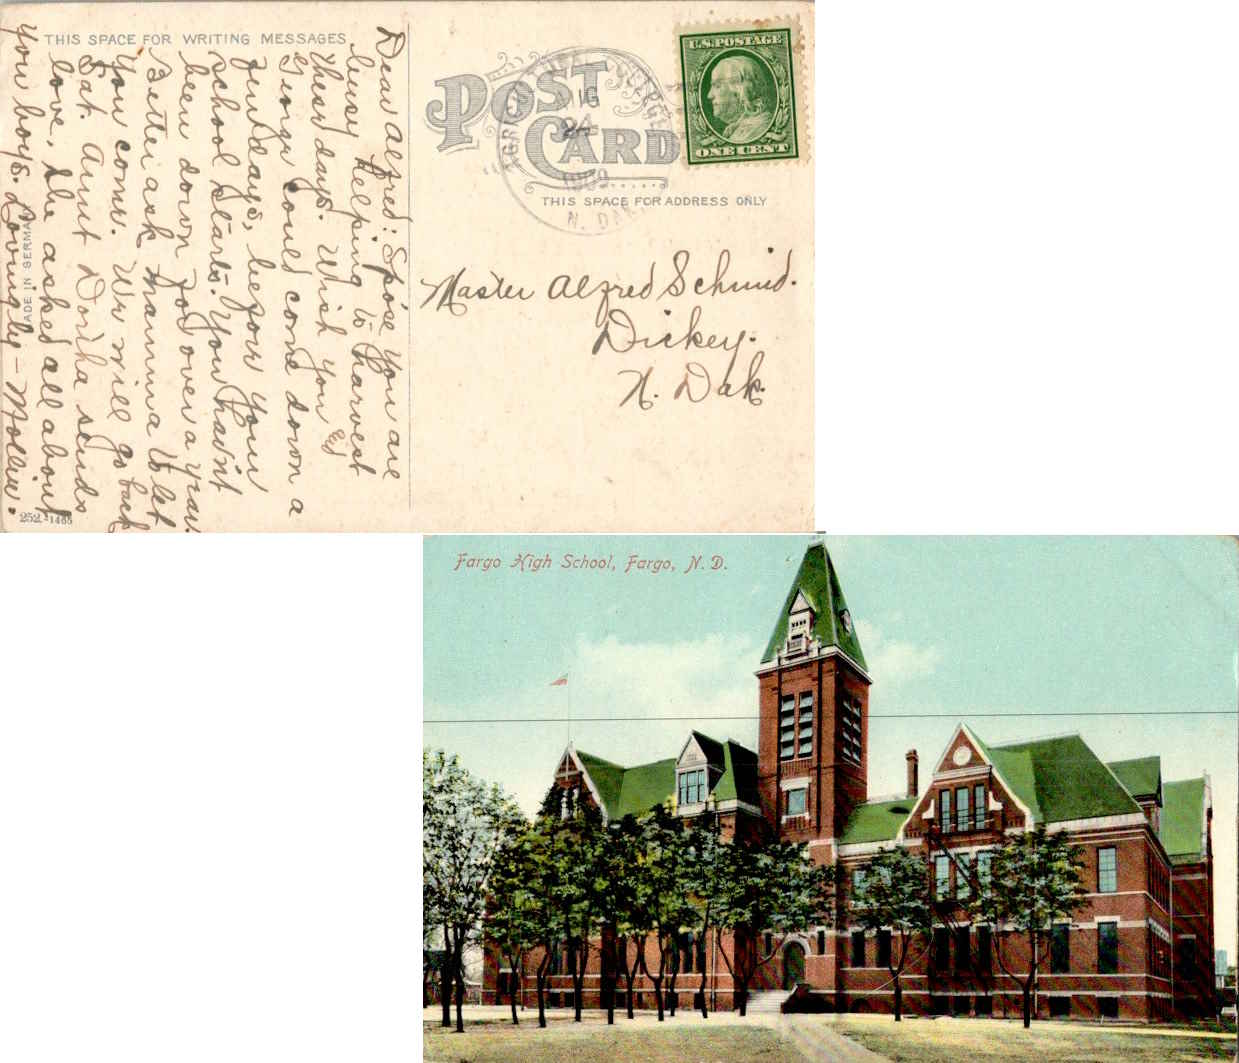 THIS SPACE FOR WRITING MESSAGES
POST CARD
THIS SPACE FOR ADDRESS ONLY
U.S. POSTAGE
ONE CENT
AUG
24
1909
N. DAK.
Master Alfred Schmid.
Dickey.
N. Dak.
Dear Alfred: Spose you are
busy helping to harvest
these days. Wish you &
George could come down a
few days, before your
school starts. You havn't
been down for over a year.
Better ask mamma to let
you come. We will go back
Sat. Aunt Dortha sends
love. She asked all about
you boys. Lovingly – Mollie.
MADE IN GERMANY
252-1465
Fargo High School, Fargo, N. D.